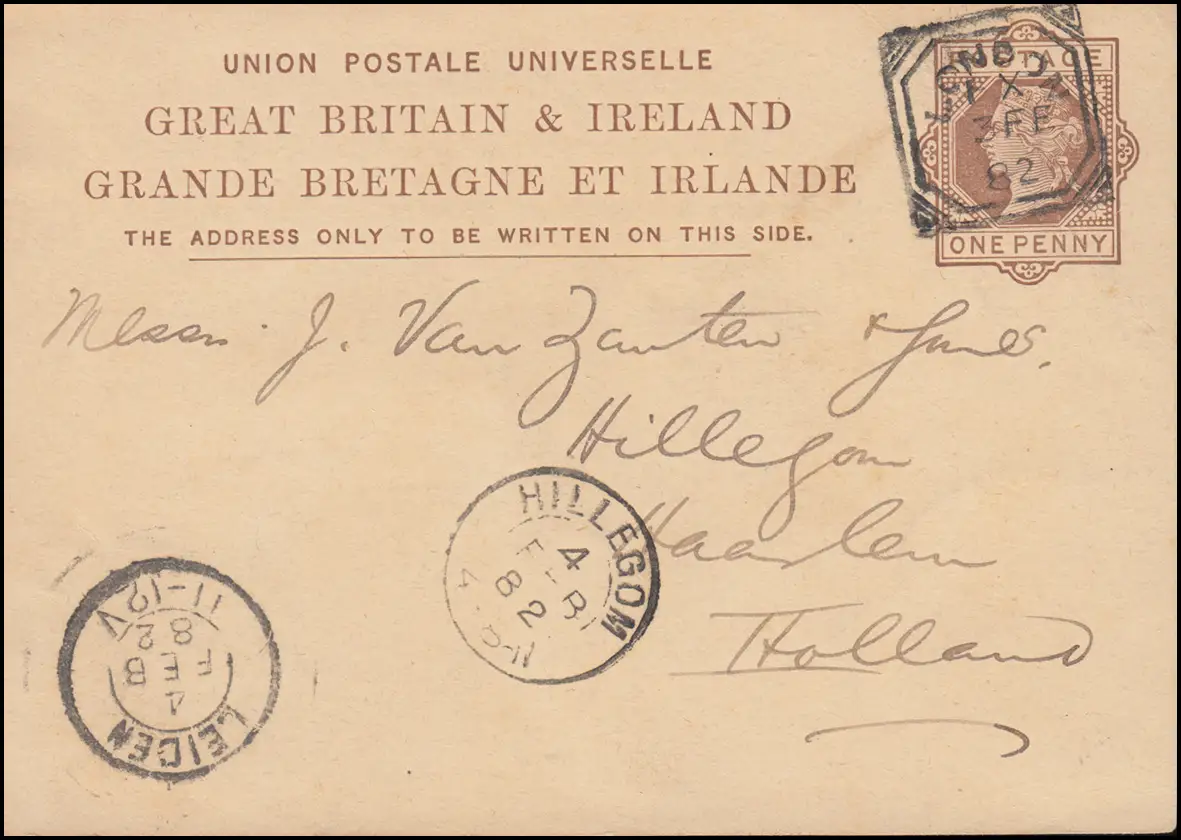 UNION POSTALE UNIVERSELLE
GREAT BRITAIN & IRELAND
GRANDE BRETAGNE ET IRLANDE
THE ADDRESS ONLY TO BE WRITTEN ON THIS SIDE.
POSTAGE
ONE PENNY
LONDON
X
3 FE
82
Messrs. J. Van Zanten & Sons.
Hillegom
Haarlem
Holland
HILLEGOM
4
FEB
82
LEIDEN
4
FEB
82
11-12V